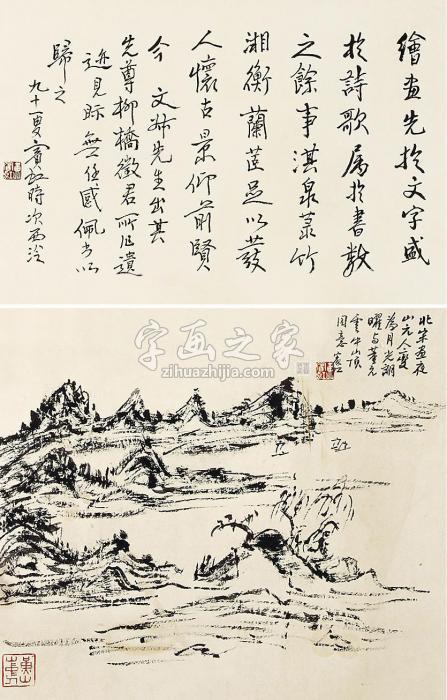 繪畫先於文字盛
於詩歌屬於書數
之餘事淇泉菉竹
湘衡蘭茝足以發
人懷古景仰前賢
今文姊先生出其
先尊柳橋徵君所作遺
迹見眎無任感佩書以
歸之
九十叟賓虹時次西泠
北宋畫夜
山元人變
為月光湖
曜與董元
雲中山頂
同意賓虹
字画之家
zihuazhijia.com